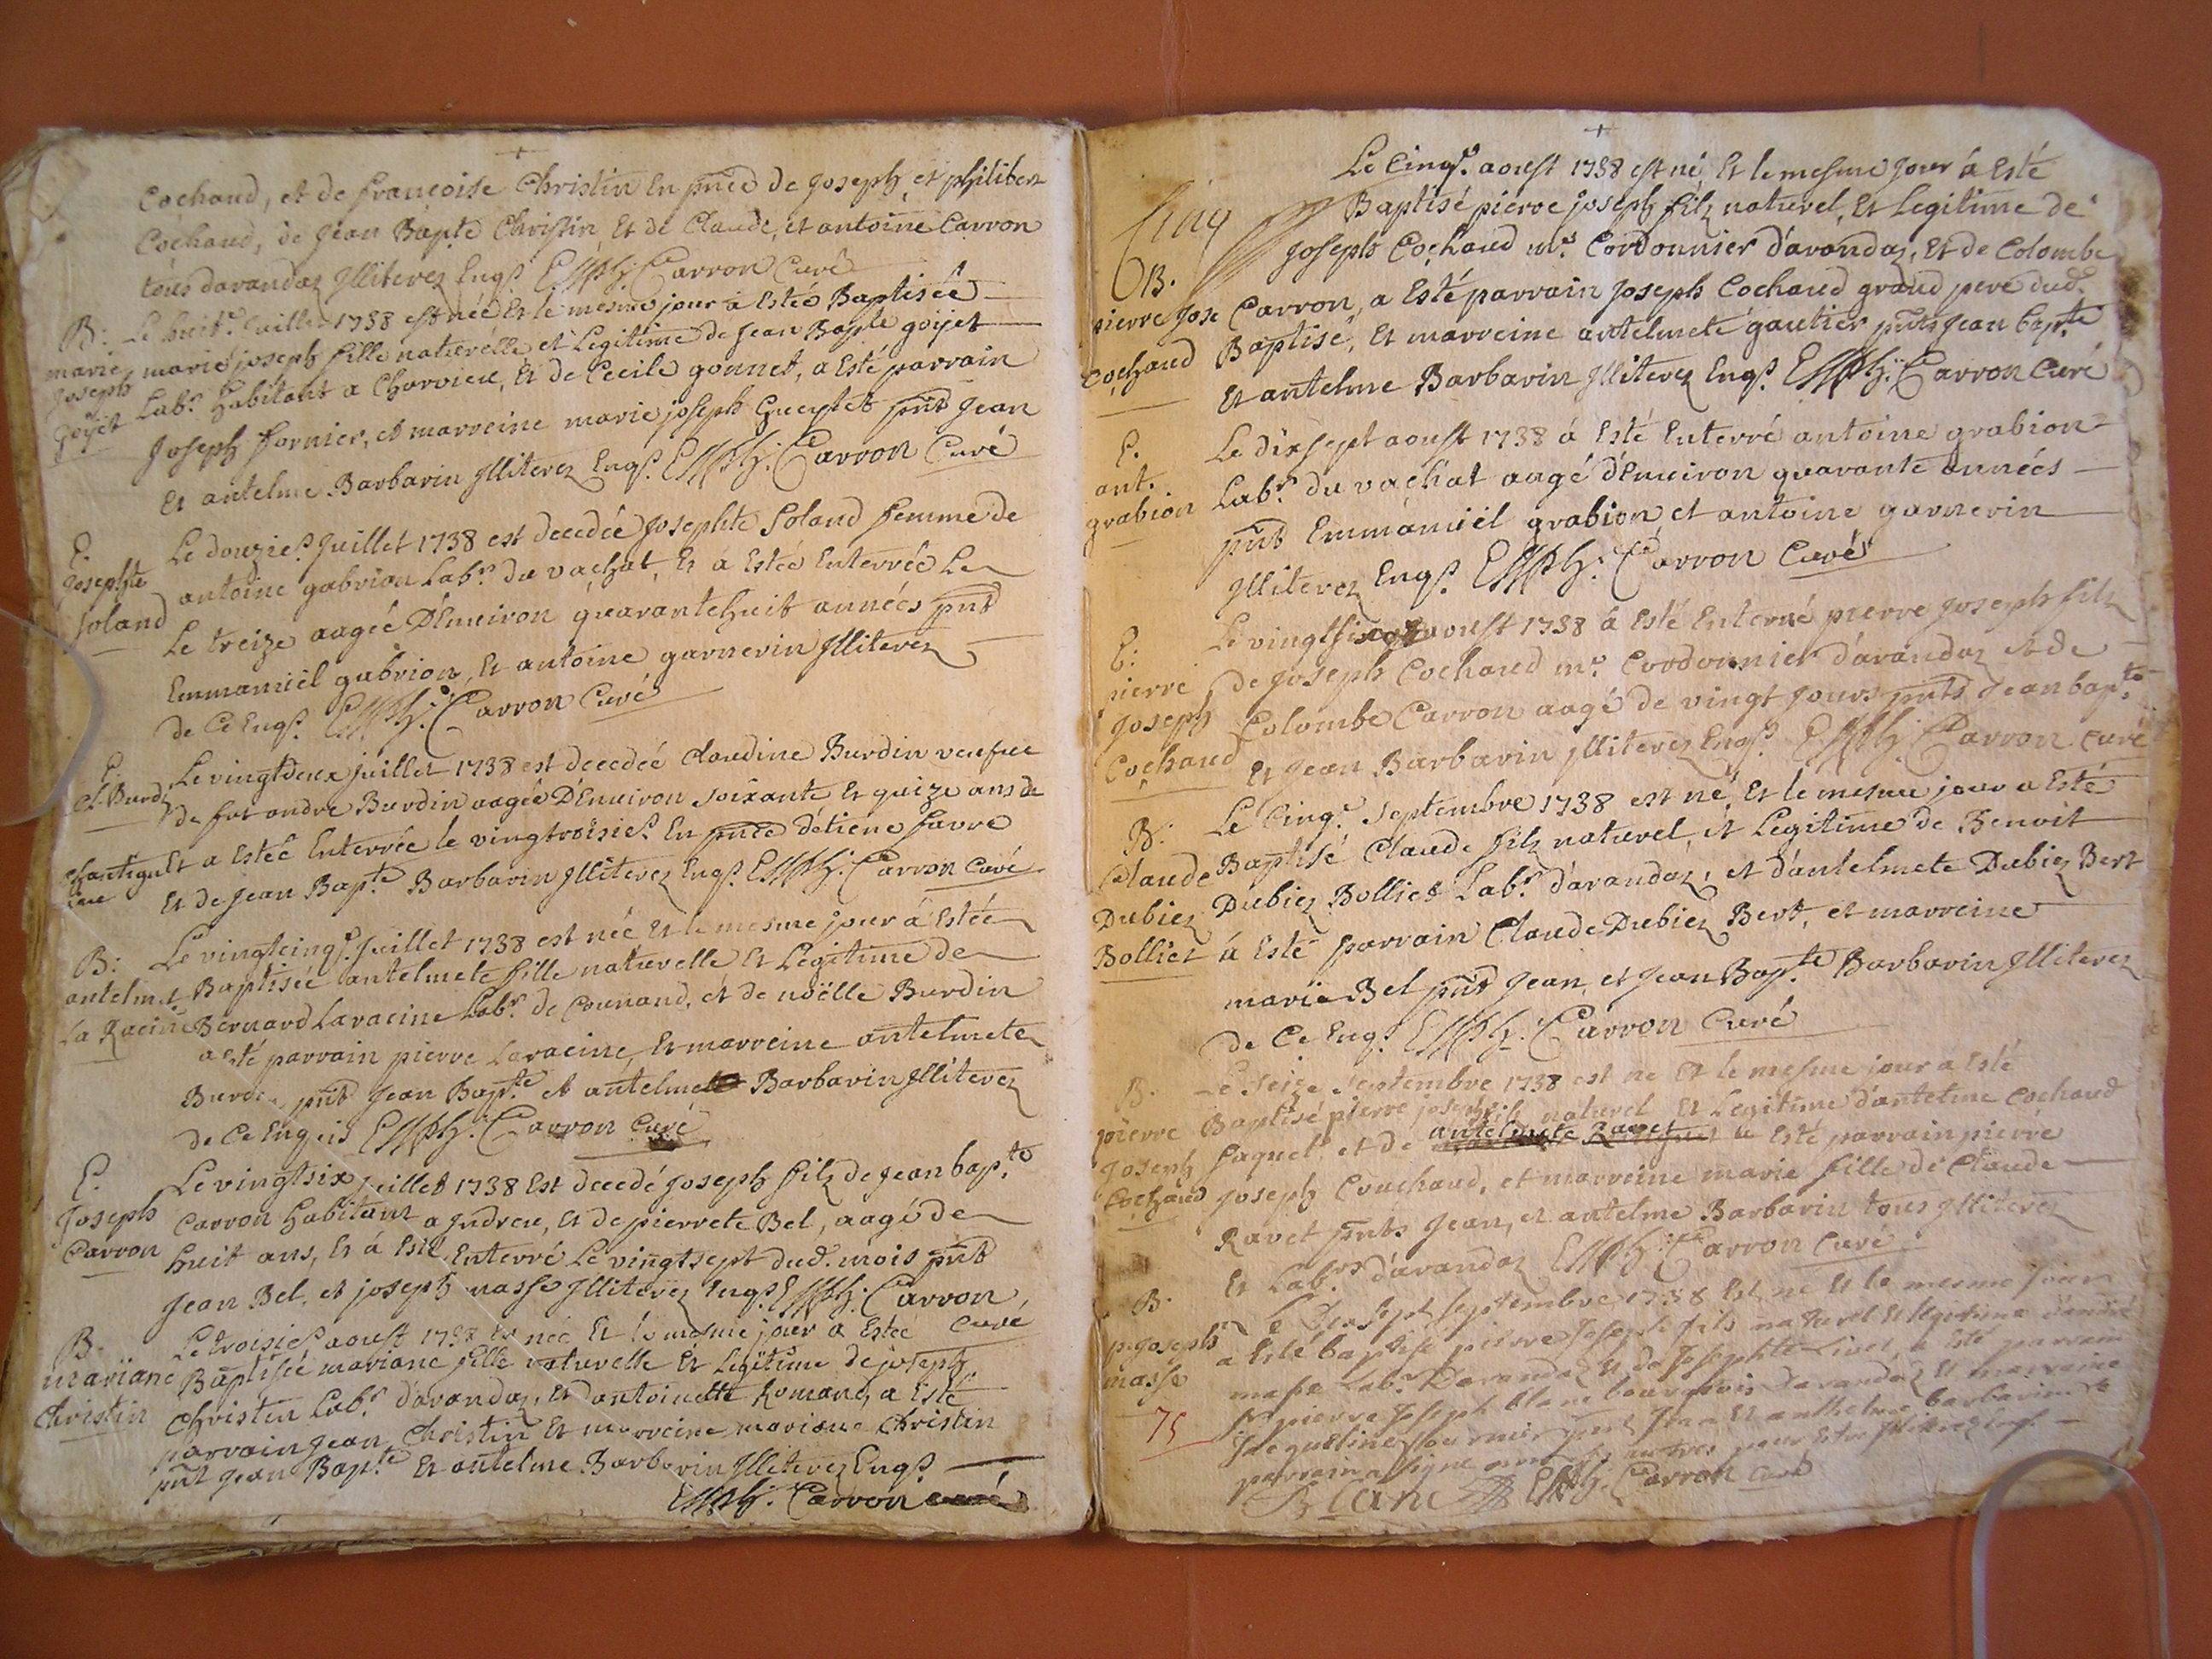 Cochaud, et de françoise Christin En pnce de Joseph, et philibert
Cochaud, de Jean Bapte Christin, Et de Claude, et antoine Carron
tous darandaz Jlliterez Enqs. Carron Curé
B: Le huite. Juillet 1738 est née Et le mesme jour a Estée Baptisée
marie joseph fille naturelle et Legitime de Jean Bapte goijet
marie Joseph goijet
Labr. habitant a Charvieu, Et de Cecile gonnet, a Esté parrain
Joseph fornier, et marreine marie joseph pnt Jean
Et antelme Barbarin Jlliterez Enqs. Carron Curé
E. Josephte Soland
Le douzies. Juillet 1738 est decedée Josephte Soland femme de
antoine gabrion Labr. du vachat, Et a Estée Enterrée Le
Le treize aagée D'Enuiron quarantehuit années pnt
Emmanuiel gabrion, Et antoine garnerin Jlliterez
de Ce Enqs. Carron Curé
E. Cl. Burdi
Le vingtdeux juillet 1738 est decedée Claudine Burdin veufue
de fut andre Burdin aagée D'Enuiron soixante Et quize ans de
Et a Estée Enterrée le vingtroisies. En pnce détiene favre
Et de Jean Bapte. Barbarin Jlliterez Enqs. Carron Curé
B: antelmete La Racine
Le vingtcinqs. Juillet 1738 est née Et le mesme jour á Estée
Baptisée antelmete fille naturelle Et Legitime de
Bernard Laracine Labr. de Counand, et de noëlle Burdin
a esté parrain pierre Laracine Et marreine antelmete
pnt Jean Bapte. et antelme Barbarin Jlliterez
de Ce Enquis Carron Curé
E. Joseph Carron
Le vingtsix juillet 1738 Est decedé Joseph filz de Jean bapte.
Carron habitant a Jndreu, Et de pierrete Bel, aagé de
huit ans, Et á Esté Enterré Le vingtsept dud. mois pnt
Jean Bel, et joseph masse Jlliterez Enqs. Carron
Curé
B. mariane Christin
Le troisies. aoust 1738 Est née Et le mesme jour a Estée
Baptisée mariane fille naturelle Et Legitime de joseph
Christin Labr. d'arandaz, Et d'antoinette Romand, a Esté
parrain Jean Christin Et marreine mariane Christin
pnt Jean Bapte. Et antelme Barbarin Jlliterez Enqs.
Carron curé
Le Cinqe. aoust 1738 est né Et le mesme Jour á Esté
Cinq
Baptisé pierre joseph filz naturel, Et Legitime de
Joseph Cochaud me. Cordonnier d'arandaz, Et de Colombe
B. pierre Jose Cochaud
Carron, a Esté parrain Joseph Cochaud grand pere dud.
Baptisé, Et marreine antelmete gautier pnts Jean bapte.
Et antelme Barbarin Jlliterez Enqs. Carron Curé
E. ant. grabion
Le dixsept aoust 1738 á Esté Enterré antoine grabion
Labr. du vachat aagé d'Enuiron quarante années
pnt Emmanuiel grabion et antoine garnerin
Jlliterez Enqs. Carron Curé
E: pierre Joseph Cochaud
Le aoust 1738 á Esté Enterré pierre Joseph filz
de Joseph Cochaud me. Cordonnier d'arandaz et de
Colombe Carron aagé de vingt Jours pnts Jean bapte.
Et Jean Barbarin Jlliterez Enqs. Carron curé
B. Claude Dubiez Bolliet
Le Cinqe. Septembre 1738 est né, Et le mesme jour a Esté
Baptisé Claude filz naturel, et Legitime de Benoit
Dubiez Bolliet Labr. d'arandaz, et d'antelmete Dubiez Bert
á Esté parrain Claude Dubiez Bert, et marreine
marie Bel pnt Jean, et Jean Bapte. Barbarin Jlliterez
de Ce Enqs. Carron Curé
B. pierre Joseph Cochaud
Le Seize Septembre 1738 est ne Et le mesme jour a Esté
Baptisé pierre joseph filz naturel Et Legitime d'antelme Cochaud
faquet, et de antelmete Ravet a Esté parrain pierre
Joseph Couchaud, et marreine marie fille de Claude
Ravet pnts Jean, et antelme Barbarin tous Jlliterez
Et Labrs. d'arandaz Carron Curé
B. p. joseph masse
Le Dixsept septembre 1738 Est ne Et le mesme Jour
a Esté baptise pierre Joseph fils naturel Et legitime d'andré
masse Labr. Darandaz Et de Josephte Livet, a Esté parrain
75
Sr. pierre Joseph blanc bourgeois darandaz Et marreine
Jacqueline fournier pnt Jean Et anthelme barbarin
parrain a signe non les autres pour Estre Jlliterez Enqs.
Blanc Carron Curé